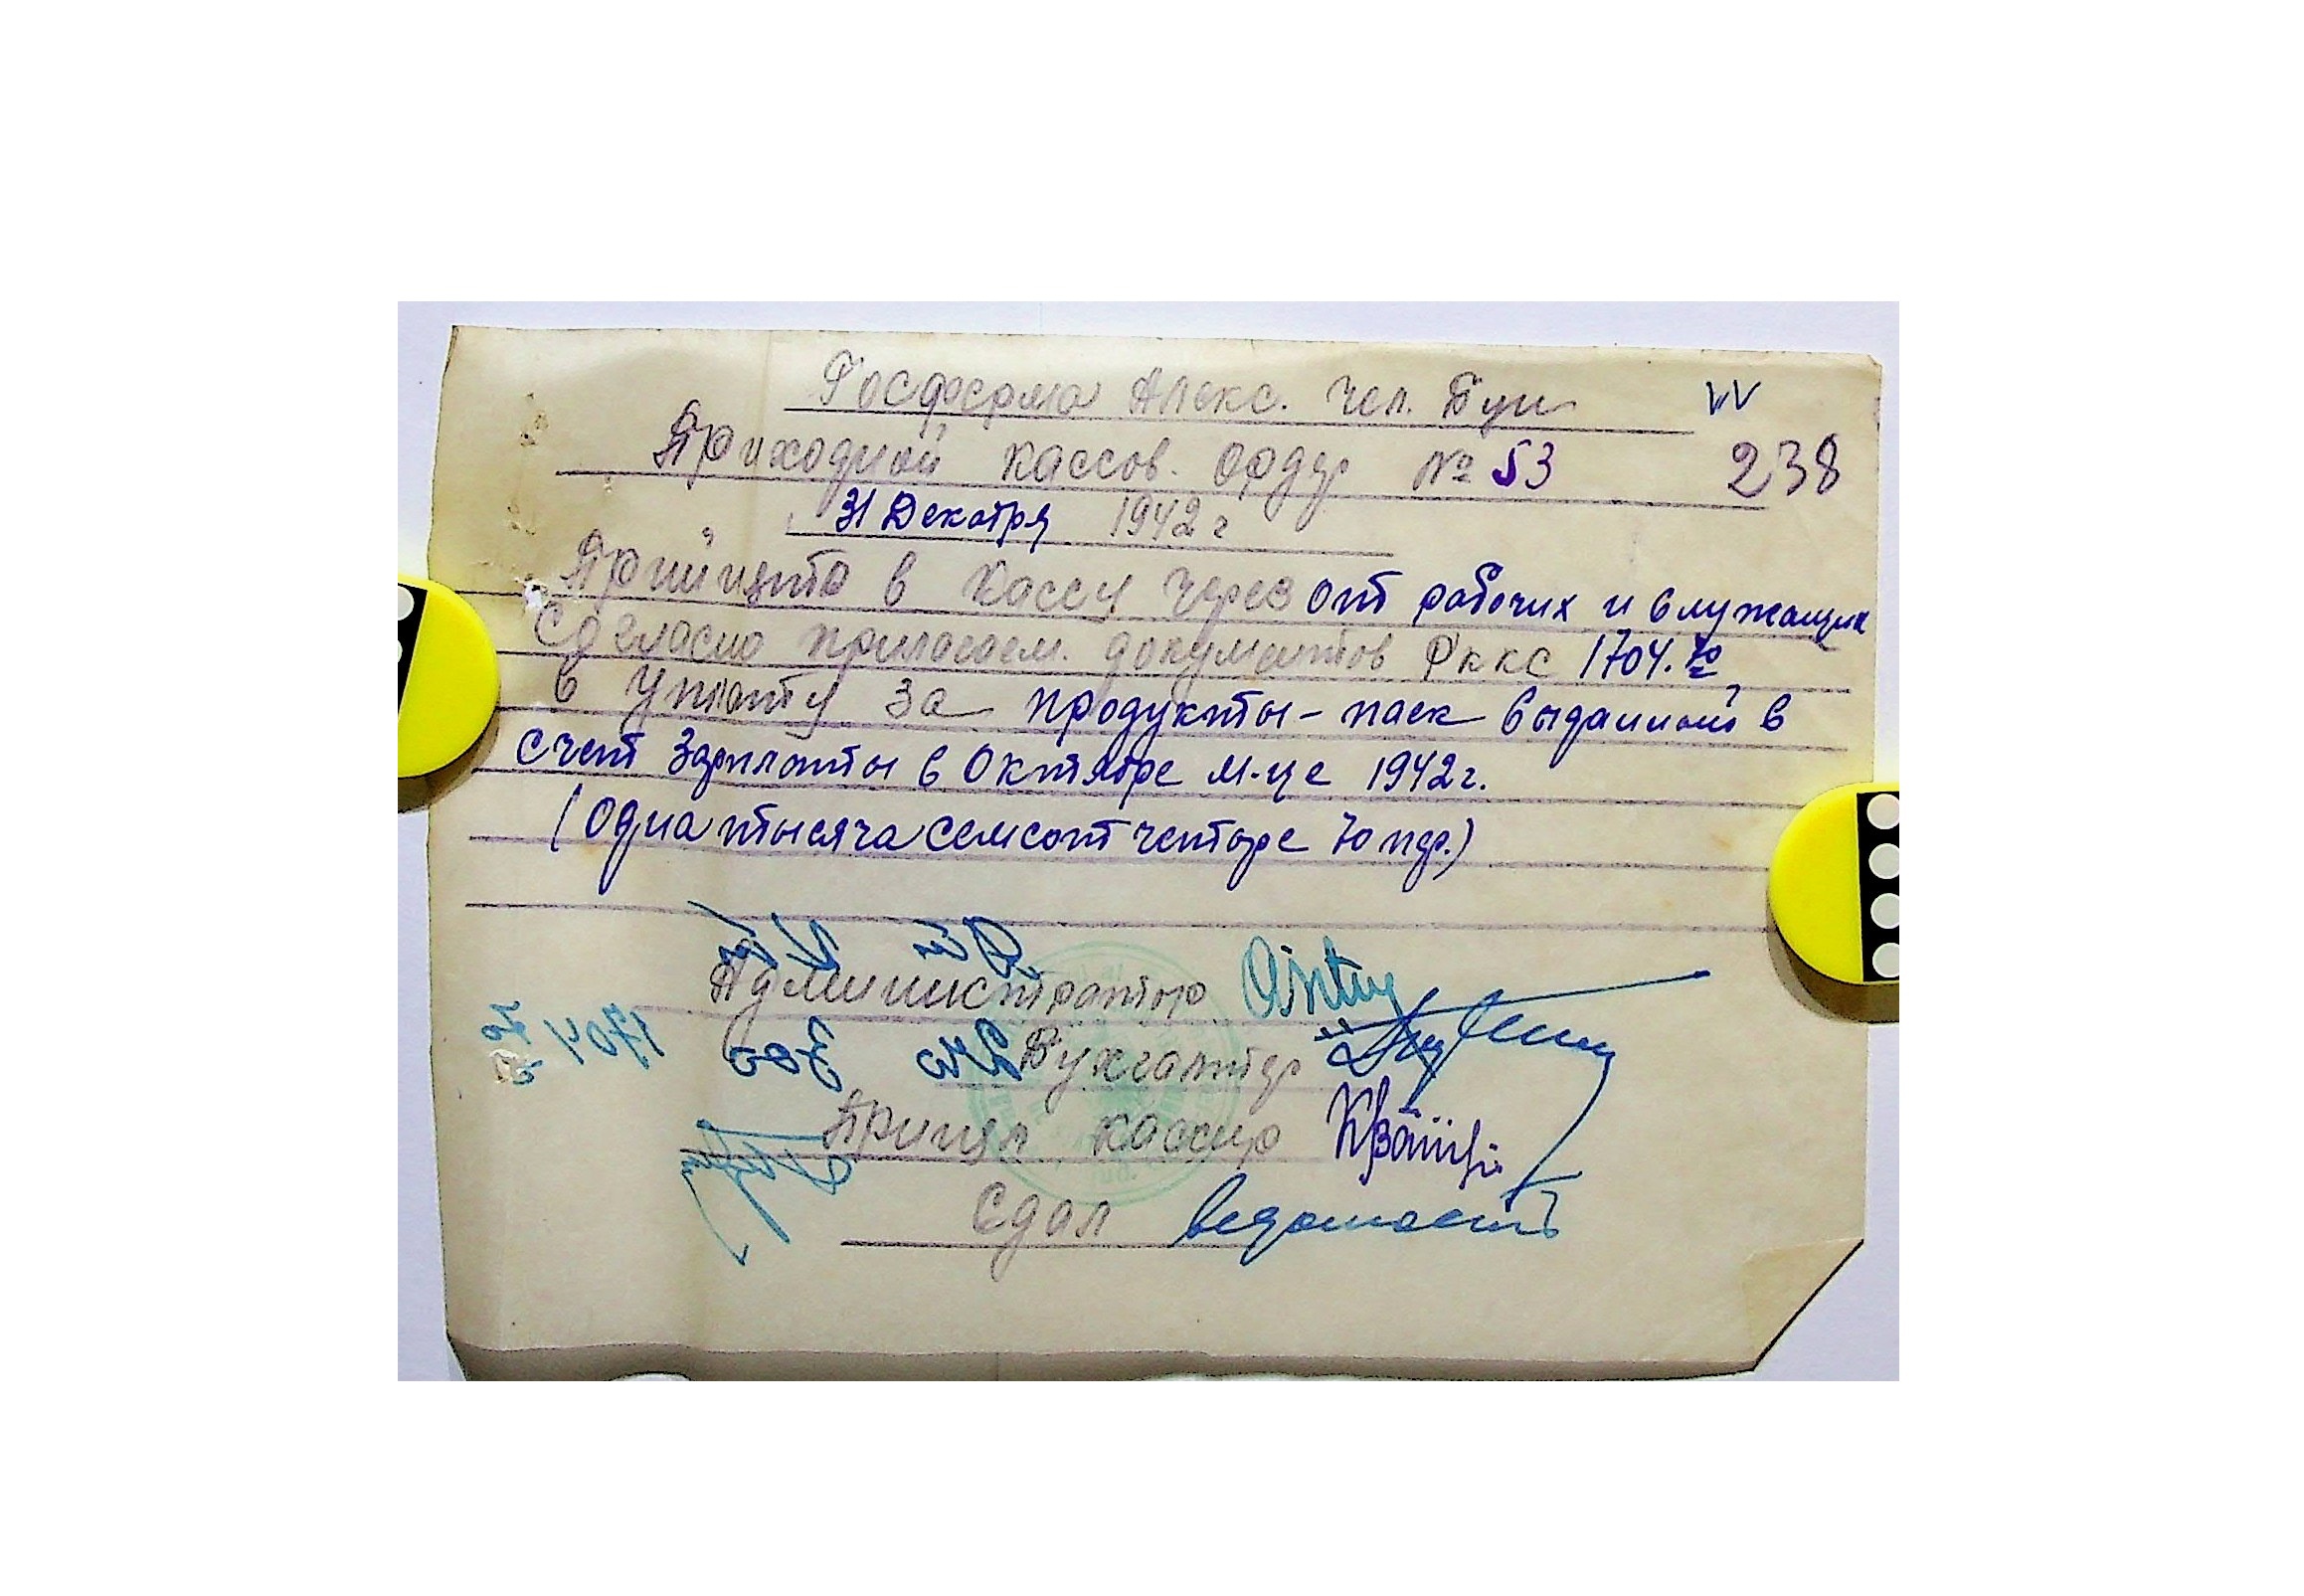 Госферма Алекс. Чел. Бун
VV
Приходной кассов. ордер № 53
238
31 Декабря 1942 г
Принято в кассу через от рабочих и служащих
Согласно прилагаем. документов Рккс 1704.70
в уплату за продукты - паек выданной в
счет Зарплаты в Октябре м-це 1942 г.
(Одна тысяча семсот четыре 70 пф.)
Администратор
Бухгалтер
1704 70
300
240
Принял кассир
Сдал ведомость